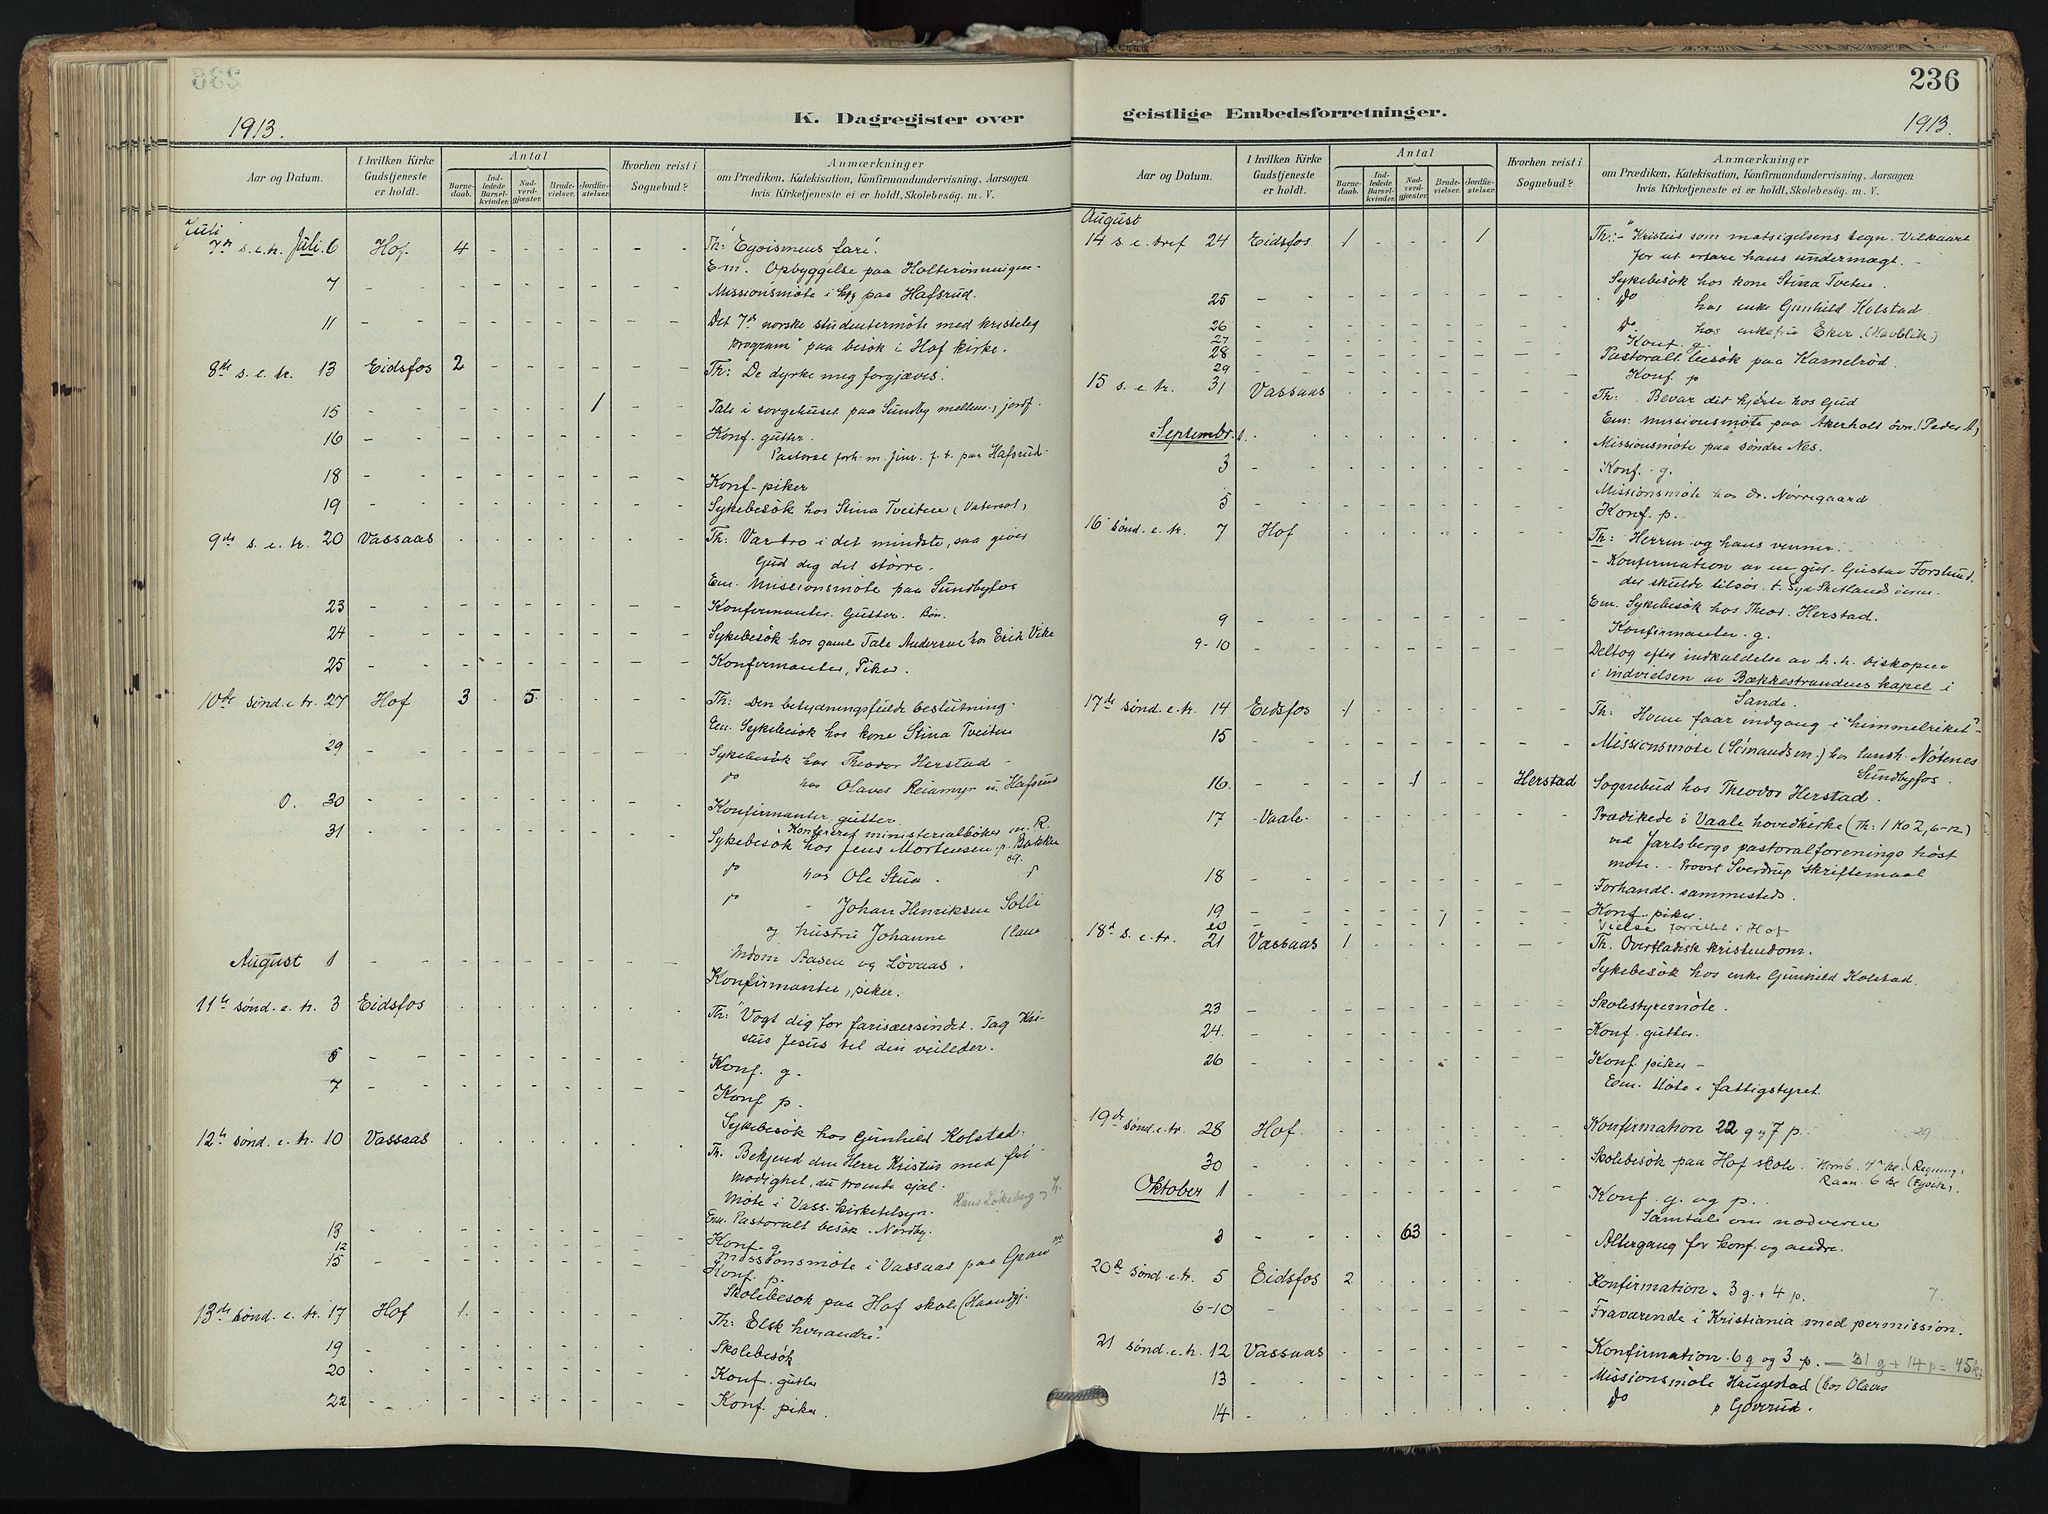 236
1913.
K. Dagregister over
Aar og Datum.
I hvilken Kirke Gudstjeneste er holdt.
Antal
Barnedaab.
Indledede Barselkvinder.
Nadverdgjæster.
Brudevielser.
Jordfæstelser.
Hvorhen reist i Sognebud?
Anmærkninger
om Prædiken, Katekisation, Konfirmandundervisning. Aarsagen
hvis Kirketjeneste ei er holdt, Skolebesøg. m. V.
Juli
7de s. e. tr. Juli 6 Hof. 4 - - - - - Th: "Egoismens fare".
Em. Opbyggelse paa Holterønningen-
7 - - - - - - - Missionsmøte i paa Hafsrud.
11 - - - - - - - Det 7de norske studentermøte med kristelig
program" paa besøk i Hof kirke.
8de s. e. tr. 13 Eidsfos 2 - - - - - Th: De dyrke mig forgjæves.
15 - - - - - 1 - Tale i sørgehuset paa Sundby mellem, jordf.
16 - - - - - - - Konf. gutter.
Pastoral forh. m. f. t. paa Hafsrud.
18 - - - - - - - Konf. piker
19 - - - - - - - Sykebesøk hos Stina Tveiten
9de s. e. tr. 20 Vassaas - - - - - - Th: Vær tro i det mindste, saa giver
Gud dig det større.
Em. Missionsmøte paa Sundbyfos
23 - - - - - - - Konfirmanter. Gutter. Bøn.
24 - - - - - - - Sykebesøk hos gamle Tale Andersen hos Erik Vike
25 - - - - - - - Konfirmanter, Piker.
10de sønd. e tr. 27 Hof 3 - 5 - - - Th: Den betydningsfulde beslutning.
Em. Sykebesøk hos kone Stina Tveiten
29 - - - - - - - Sykebesøk hos Theodor Herstad -
do hos Olaves Reiamyr u. Hafsrud
30 - - - - - - - Konfirmanter, gutter.
Konfereret ministerialbøker m. R.
31 - - - - - - - Sykebesøk hos Jens Mortensen, p. Bakken
do hos Ole Stua.
do - Johan Henriksen Solli
og hustru Johanne
indom Aasen og Løvaas.
August 1 Konfirmanter, piker.
11te sønd. e. tr. 3 Eidsfos - - - - - - Th: "Vogt dig for farisæersindet. Tag Kri-
stus Jesus til din veileder.
5 - - - - - - - Konf. g.
7 - - - - - - - Konf p.
Sykebesøk hos Gunhild Kolstad.
12te sønd. e. tr. 10 Vassaas - - - - - - Th. Bekjend den Herre Kristus med fri-
modighet, du troende sjæl.
Møte i Vass. kirketilsyn. Hans Løkeberg
Em. Pastoralt besøk. Nordby.
13 - - - - - - - Konf. g
12 Missionsmøte i Vassaas paa Gran
15 - - - - - - - Konf. p.
Skolebesøk paa Hof skole (Haandg.
13de sønd. e. tr. 17 Hof 1. - - - - - Th: Elsk hverandre".
19 - - - - - - - Skolebesøk
20 - - - - - - - Konf. gutter
22 - - - - - - - Konf. piker.
236
geistlige Embedsforretninger.
1913.
Aar og Datum.
I hvilken Kirke Gudstjeneste er holdt.
Antal
Barnedaab.
Indledede Barselkvinder.
Nadverdgjæster.
Brudevielser.
Jordfæstelser.
Hvorhen reist i Sognebud?
Anmærkninger
om Prædiken, Katekisation, Konfirmandundervisning. Aarsagen
hvis Kirketjeneste ei er holdt, Skolebesøg. m. V.
August
14 s. e. tref 24 Eidsfos 1 - - - 1 - Th: - "Kristus som motsigelsens tegn. Vilkaaret
for at erfare hans undermagt. -
Sykebesøk hos kone Stina Tveiten.
25 - - - - - - - Do hos enke Gunhild Kolstad
26 - - - - - - - Do hos enkefru Eker. (Havblik)
27 Konf. g.
28 - - - - - - - Pastoralt besøk paa Kamelrød.
29 Konf. p
15 s. e. tr. 31 Vassaas - - - - - - Th: Bevar dit hjerte hos Gud
Em: missionsmøte paa Akerholt øvr. (Peder A)
Septembr. 1. - - - - - - - Missionsmøte paa søndre Nes.
3 - - - - - - - Konf. g.
Missionsmøte hos dr. Nørregaard
5 - - - - - - - Konf. p.
16 sønd. e. tr. 7 Hof - - - - - - Th: Herren og hans venner. -
- Konfirmation av en gut. Gustav Forslund.
der skulde tilsjøs t. Syd Shetlands øerne.
Em. Sykebesøk hos Theod. Herstad.
9 - - - - - - - Konfirmanter. g.
9-10 - - - - - - - Deltog efter indkaldelse av h. h. biskopen
i indvielsen av Bækkestrandens kapel i
Sande.
17de sønd. e. tr. 14 Eidsfos 1 - - - - - Th: Hvem faar indgang i "himmelriket"-
15 - - - - - - - Missionsmøte (Sømandsm.) hos lansh. Nøtenes
Sundbyfos.
16. - - - 1 - - Herstad Sognebud hos Theodor Herstad.
17 -Vaale- - - - - - - Prædikede i Vaale hovedkirke (Th: 1 Ko 2, 6-12)
ved Jarlsbergs pastoralforenings høst
møte. - Provst Sverdrup skriftemaal
18 - - - - - - - Forhandl. sammesteds.
19 - - - - - - - Konf. piker.
20 1 Vielse forrettet i Hof
18d s. e. tr. 21 Vassaas 1 - - - - - Th. Overfladisk kristendom.
Sykebesøk hos enke Gunhild Kolstad.
23 - - - - - - - Skolestyremøte.
24. - - - - - - - Konf. gutter.
26 - - - - - - - Konf piker -
Em. Møte i fattigstyret.
19de sønd. e. tr. 28 Hof. - - - - - - Konfirmation 22 g og 7 p. 29
30 - - - - - - - Skolebesøk paa Hof skole. 4de kl. (Regning)
Raan. 6 kl (Fysik).
Oktober 1 - - - - - - - Konf. g. og p.
Samtale om nadveren
3 - - - 63 - - - Altergang for konf. og andre.
20de sønd. e. tr. 5 Eidsfos 2 - - - - - Konfirmation. 3 g. + 4 p. 7.
6-10 - - - - - - - Fraværende i Kristiania med permission.
21 sønd. e. tr. 12 Vassaas - - - - - - Konfirmation. 6 g og 3 p. - 31 g + 14 p = 45 k.
13 - - - - - - - Missionsmøte Haugestad (hos Olaves
14 - - - - - - - Do p Goverud.